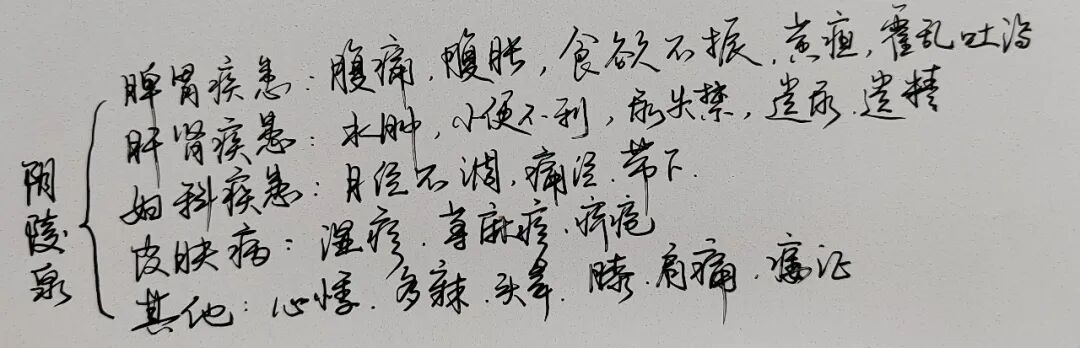 阴陵泉
脾胃疾患：腹痛，腹胀，食欲不振，黄疸，霍乱吐泻
肝肾疾患：水肿，小便不利，尿失禁，遗尿、遗精
妇科疾患：月经不调、痛经、带下.
皮肤病：湿疹、荨麻疹、痤疮
其他：心悸、多寐、头晕、膝、肩痛、痿证